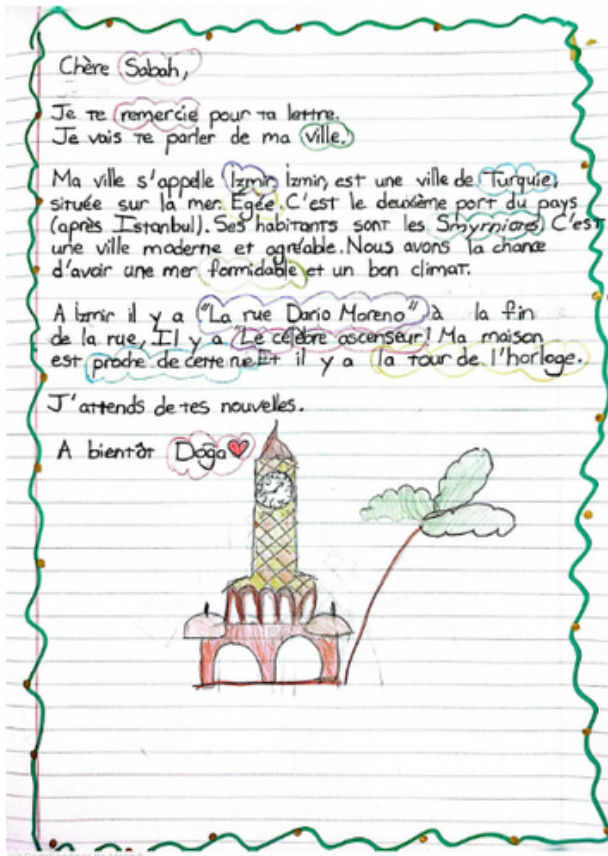 Chère Sabah,
Je te remercie pour ta lettre.
Je vais te parler de ma ville.
Ma ville s'appelle İzmir İzmir, est une ville de Turquie,
située sur la mer Egée. C'est le deuxième port du pays
(après Istanbul). Ses habitants sont les Smyrniotes. C'est
une ville moderne et agréable. Nous avons la chance
d'avoir une mer formidable et un bon climat.
A İzmir il y a "La rue Dario Moreno" à la fin
de la rue, Il y a "Le célèbre ascenseur! Ma maison
est proche de cette rue. Et il y a la tour de l'horloge.
J'attends de tes nouvelles.
A bientôt Doğa